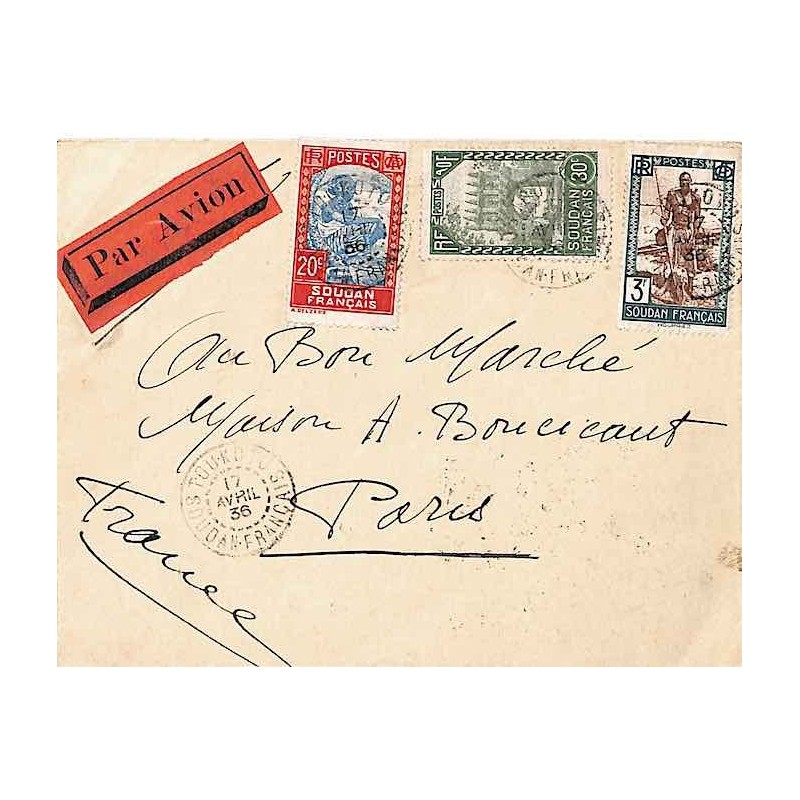 Par Avion
RF POSTES
20c
SOUDAN
FRANÇAIS
RF POSTES
30c
SOUDAN
FRANÇAIS
RF POSTES
3F
SOUDAN FRANÇAIS
17
AVRIL
36
Au Bon Marché
Maison A. Boucicaut
Paris
France
TOUKOTO
17
AVRIL
36
SOUDAN-FRANÇAIS